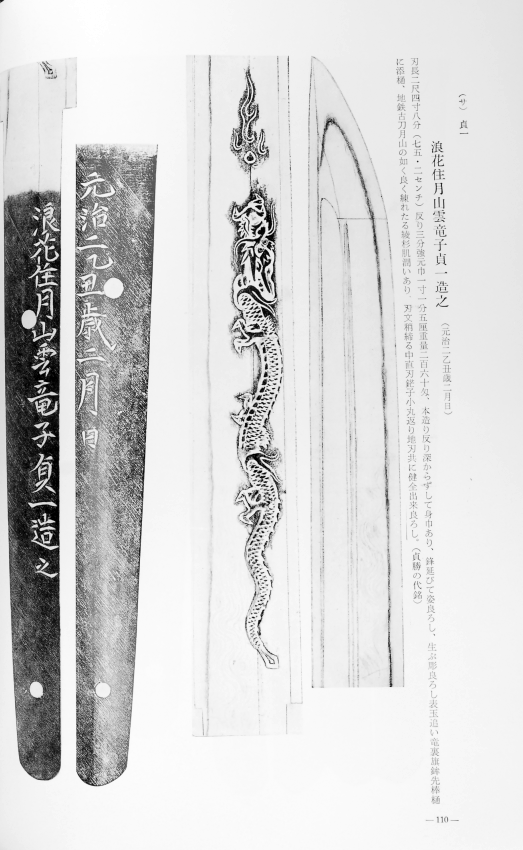 (サ) 貞一
浪花住月山雲竜子貞一造之 (元治二乙丑歳二月日)
刃長二尺四寸八分(七五・二センチ)反り三分強元巾一寸一分五厘重量二百六十匁、本造り反り深からずして身巾あり、鋒延びて姿良ろし、生ぶ彫良ろし表玉追い竜裏旗鉾先棒樋
に添樋、地鉄古刀月山の如く良く練れたる綾杉肌潤いあり、刃文稍締る中直刃鋩子小丸返り地刃共に健全出来良ろし。(貞勝の代銘)
元治二乙丑歳二月日
浪花住月山雲竜子貞一造之
— 110 —